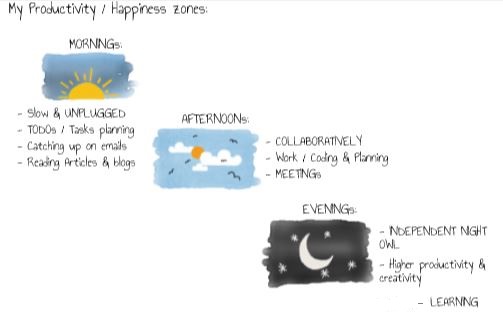 My Productivity / Happiness zones:
MORNINGs:
- Slow & UNPLUGGED
- TODOs / Tasks planning
- Catching up on emails
- Reading Articles & blogs
AFTERNOONs:
- COLLABORATIVELY
- Work / Coding & Planning
- MEETINGs
EVENINGs:
- INDEPENDENT NIGHT
OWL
- Higher productivity &
creativity
- LEARNING